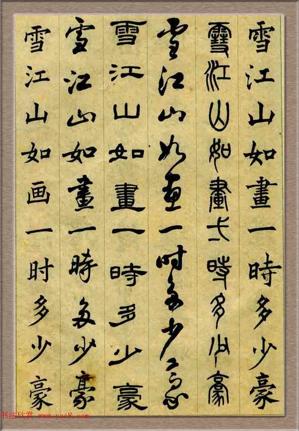 雪江山如畫一時多少豪
雪江山如畫一時多少豪
雪江山如畫一时多少豪
雪江山如畫一時多少豪
雪江山如畫一時多少豪
雪江山如画一时多少豪
书法欣赏